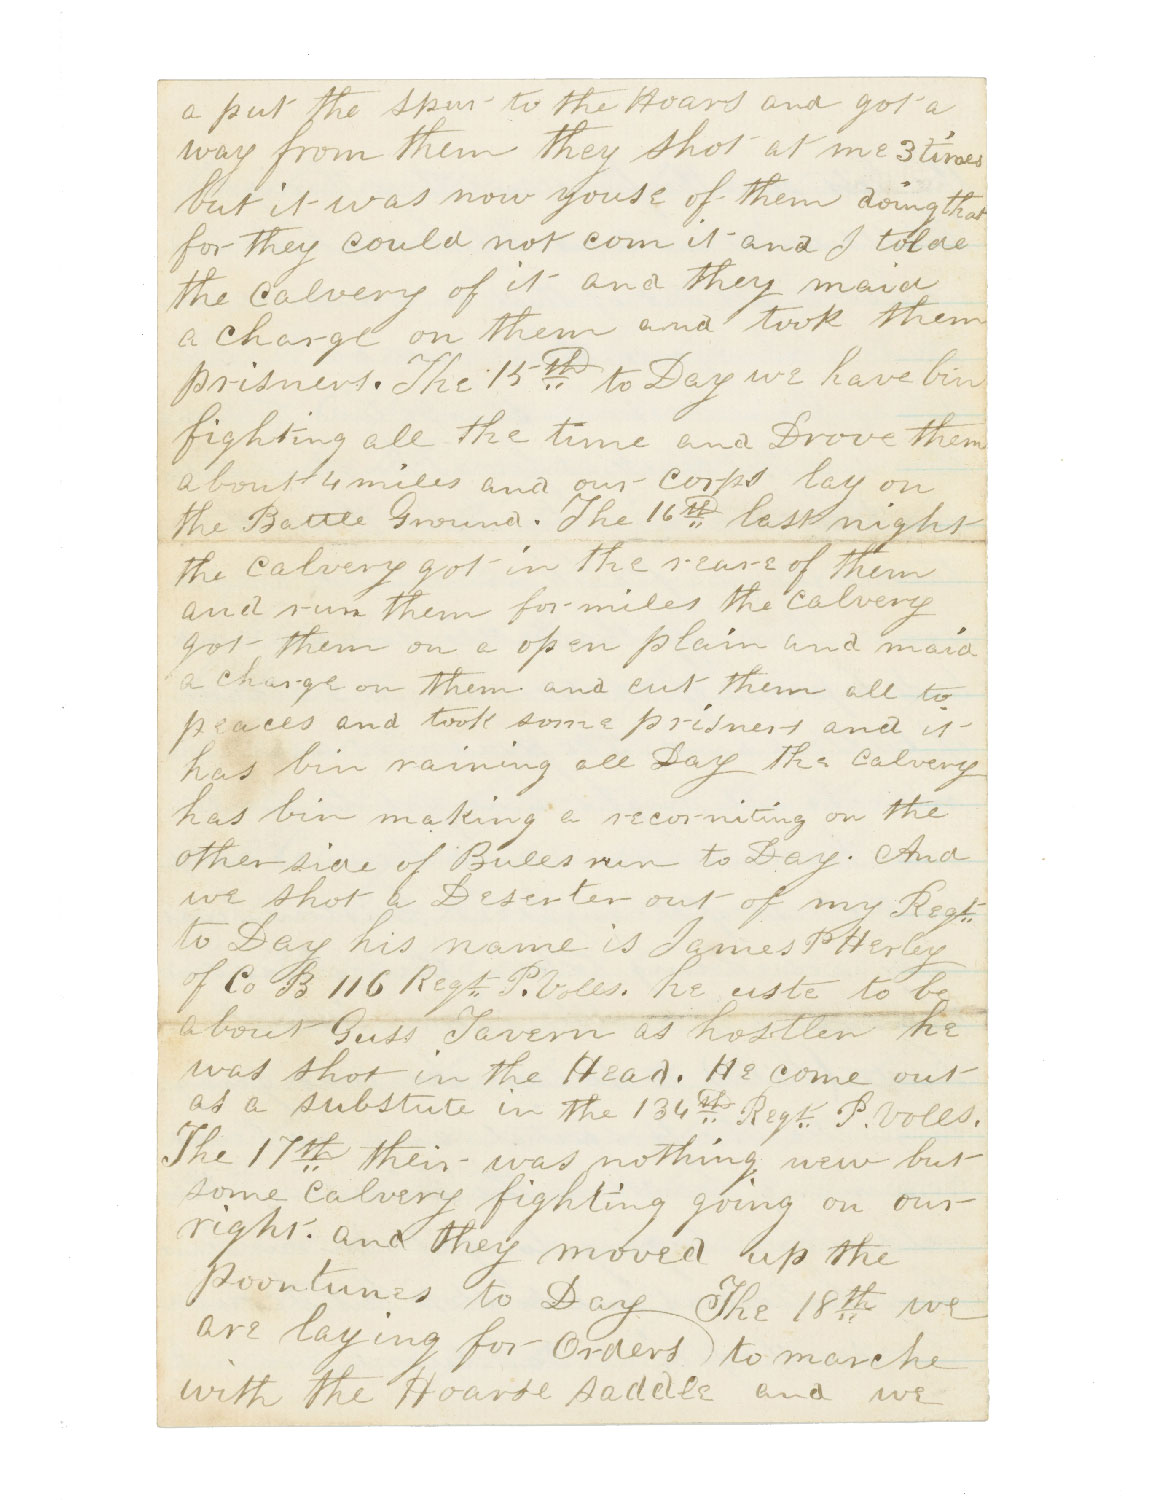 a put the spur to the Hoars and got a
way from them they shot at me 3 times
but it was now youse of them doing that
for they could not com it and I tolde
the Calvery of it and they maid
a charge on them and took them
prisners. The 15th to Day we have bin
fighting all the time and Drove them
about 4 miles and our corps lay on
the Battle Ground. The 16th last night
the Calvery got in the reare of them
and run them for miles the Calvery
got them on a open plain and maid
a charge on them and cut them all to
peaces and took some prisners and it
has bin raining all Day the Calvery
has bin making a recorniting on the
other side of Bules run to Day. And
we shot a Deserter out of my Regt.
to Day his name is James P Herley
of Co B 116 Regt. P. Voles. he uste to be
about Guss Tavern as hostler he
was shot in the Head. He come out
as a substute in the 134th Regt. P. Voles.
The 17th their was nothing new but
some Calvery fighting going on our
right. and they moved up the
poontunes to Day The 18th we
are laying for Orders to marche
with the Hoarse saddle and we